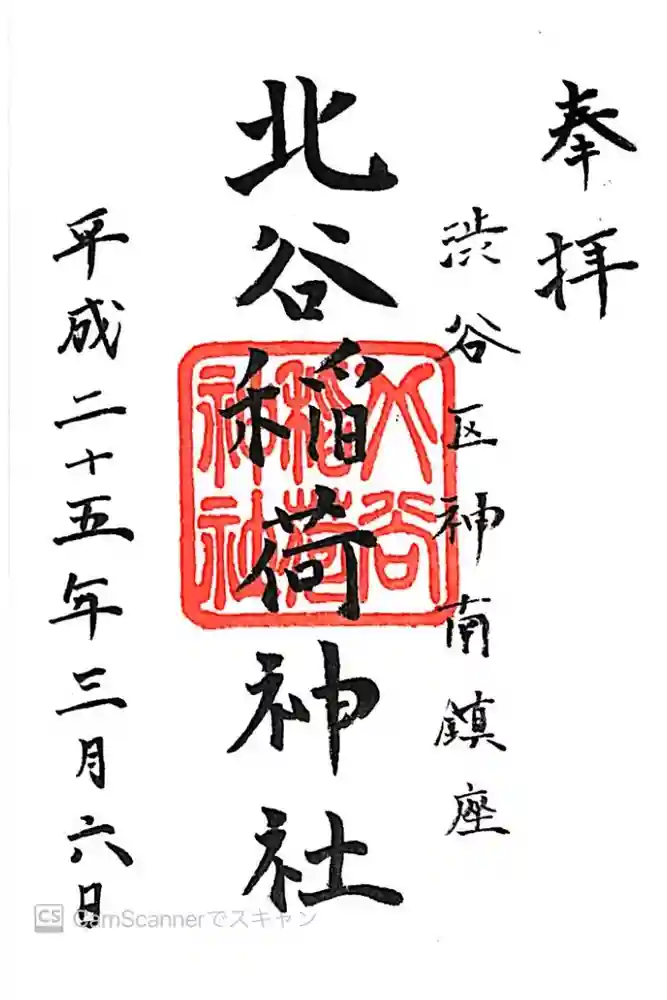 奉拝
渋谷区神南鎮座
北谷稲荷神社
平成二十五年三月六日
CS CamScannerでスキャン